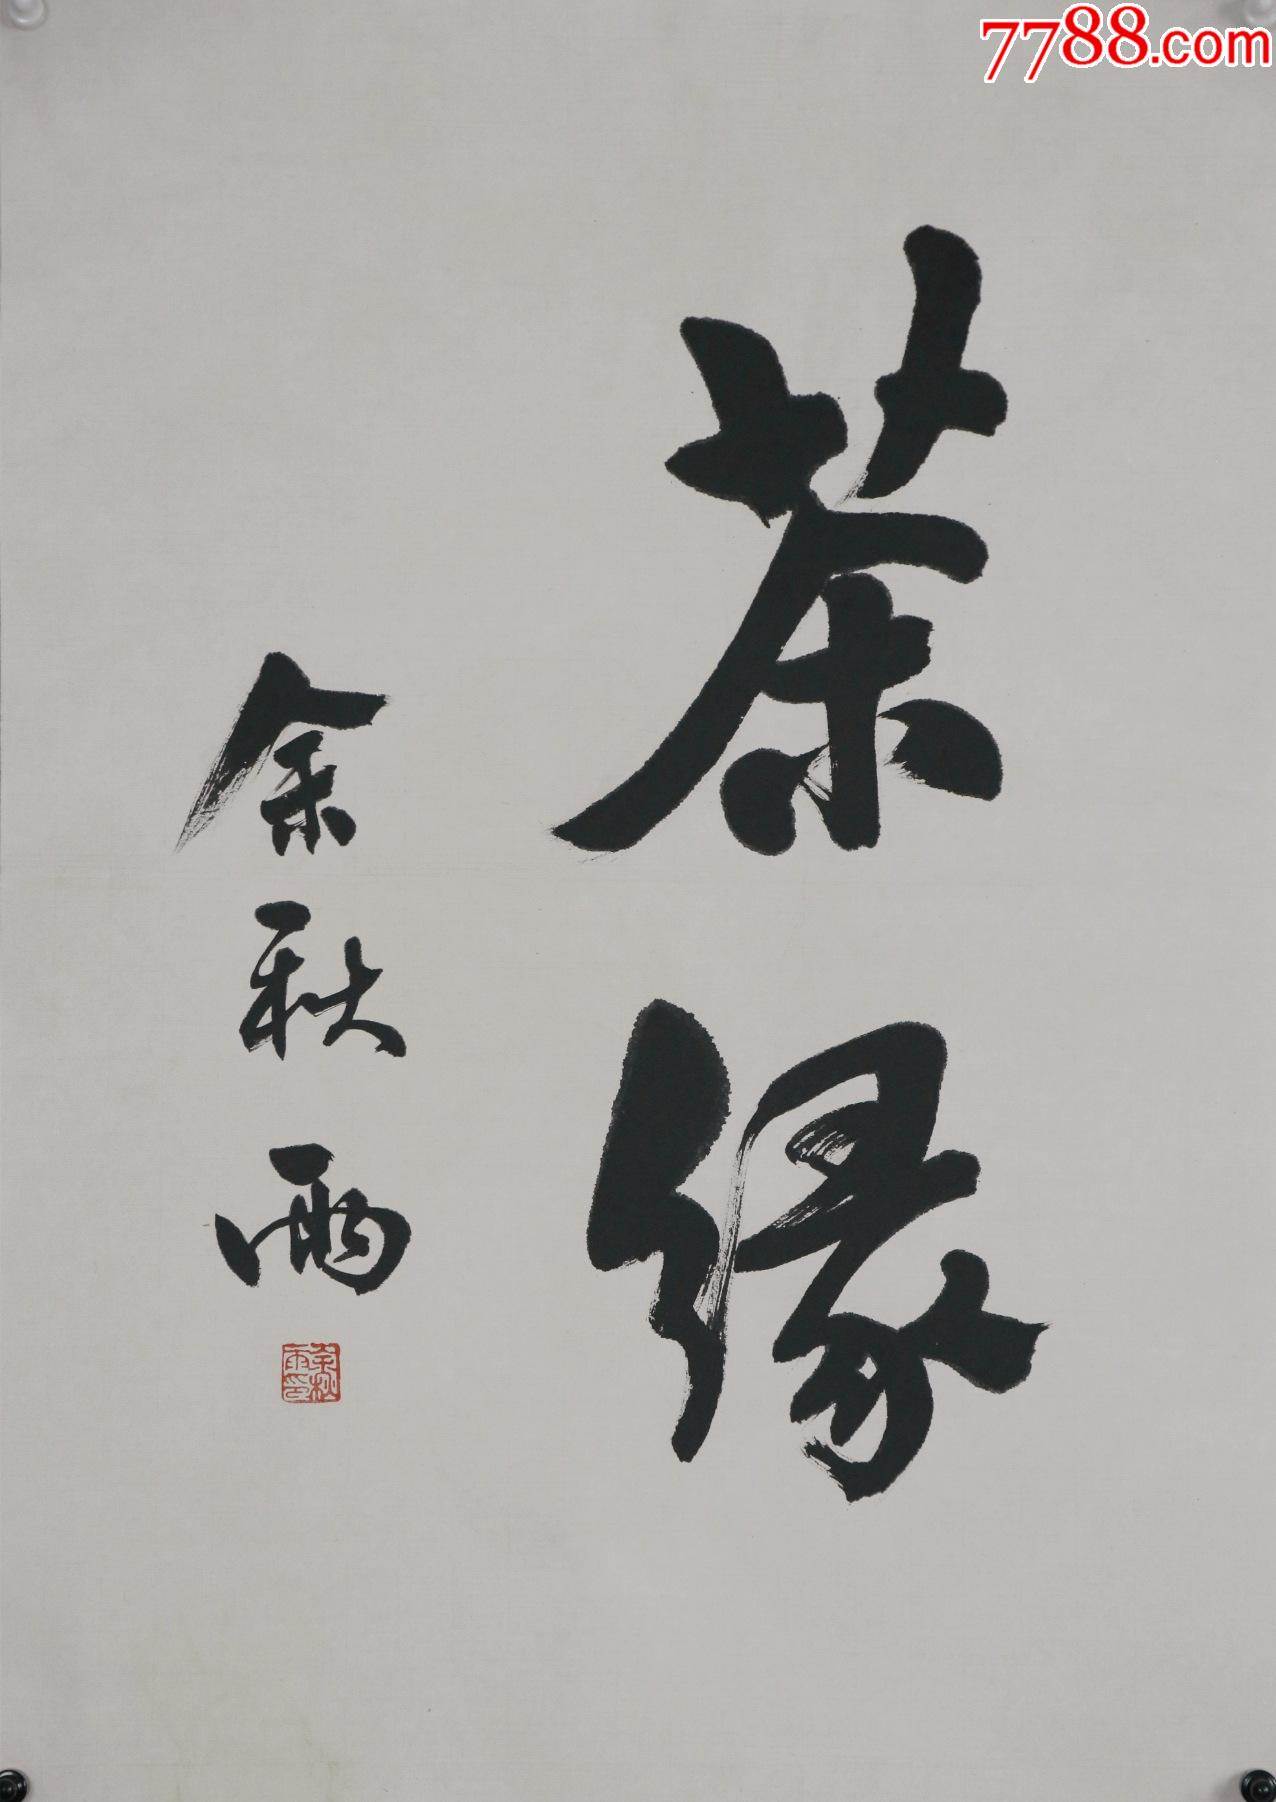 7788.com
茶缘
余秋雨
余秋雨印